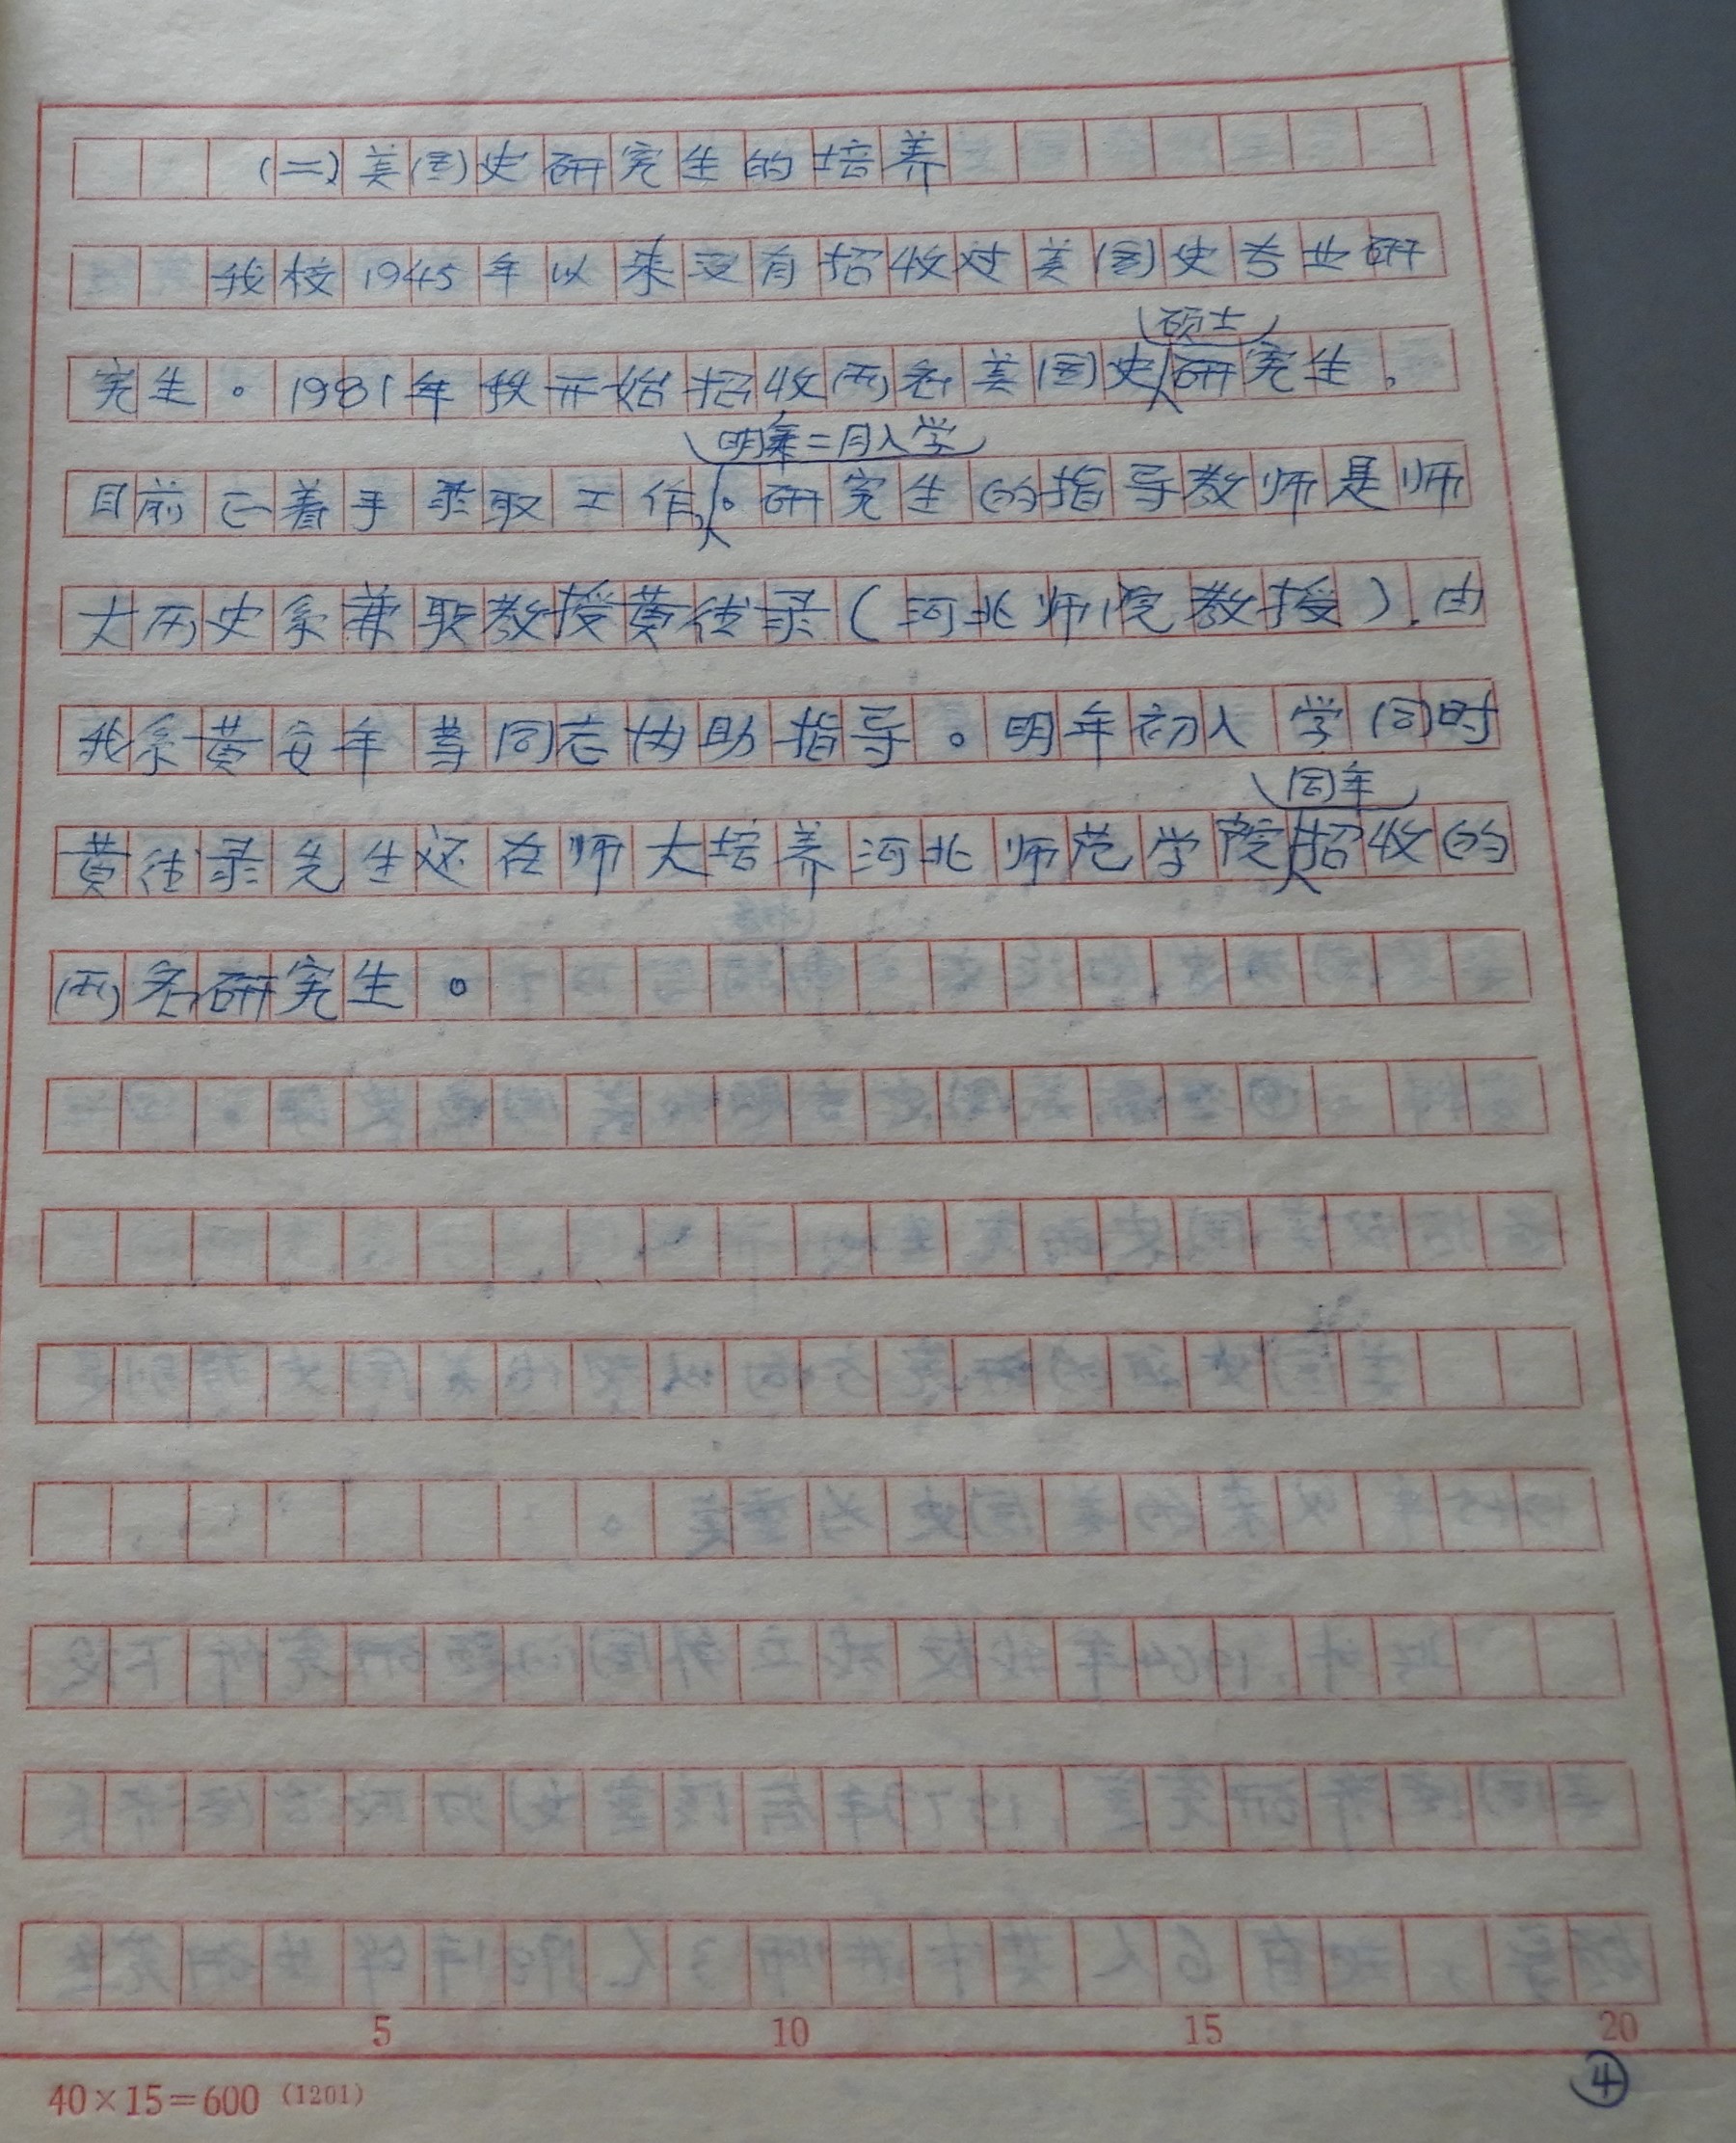 (二)美国史研究生的培养
我校1945年以来没有招收过美国史专业研
硕士
究生。1981年秋开始招收两名美国史研究生,
明年二月入学
目前已着手录取工作。研究生的指导教师是师
大历史系兼职教授黄德录(河北师院教授),由
我系黄安年等同志协助指导。明年初入学同时
同年
黄德录先生还在师大培养河北师范学院招收的
两名研究生。
5 10 15 20
40×15=600 (1201)
④